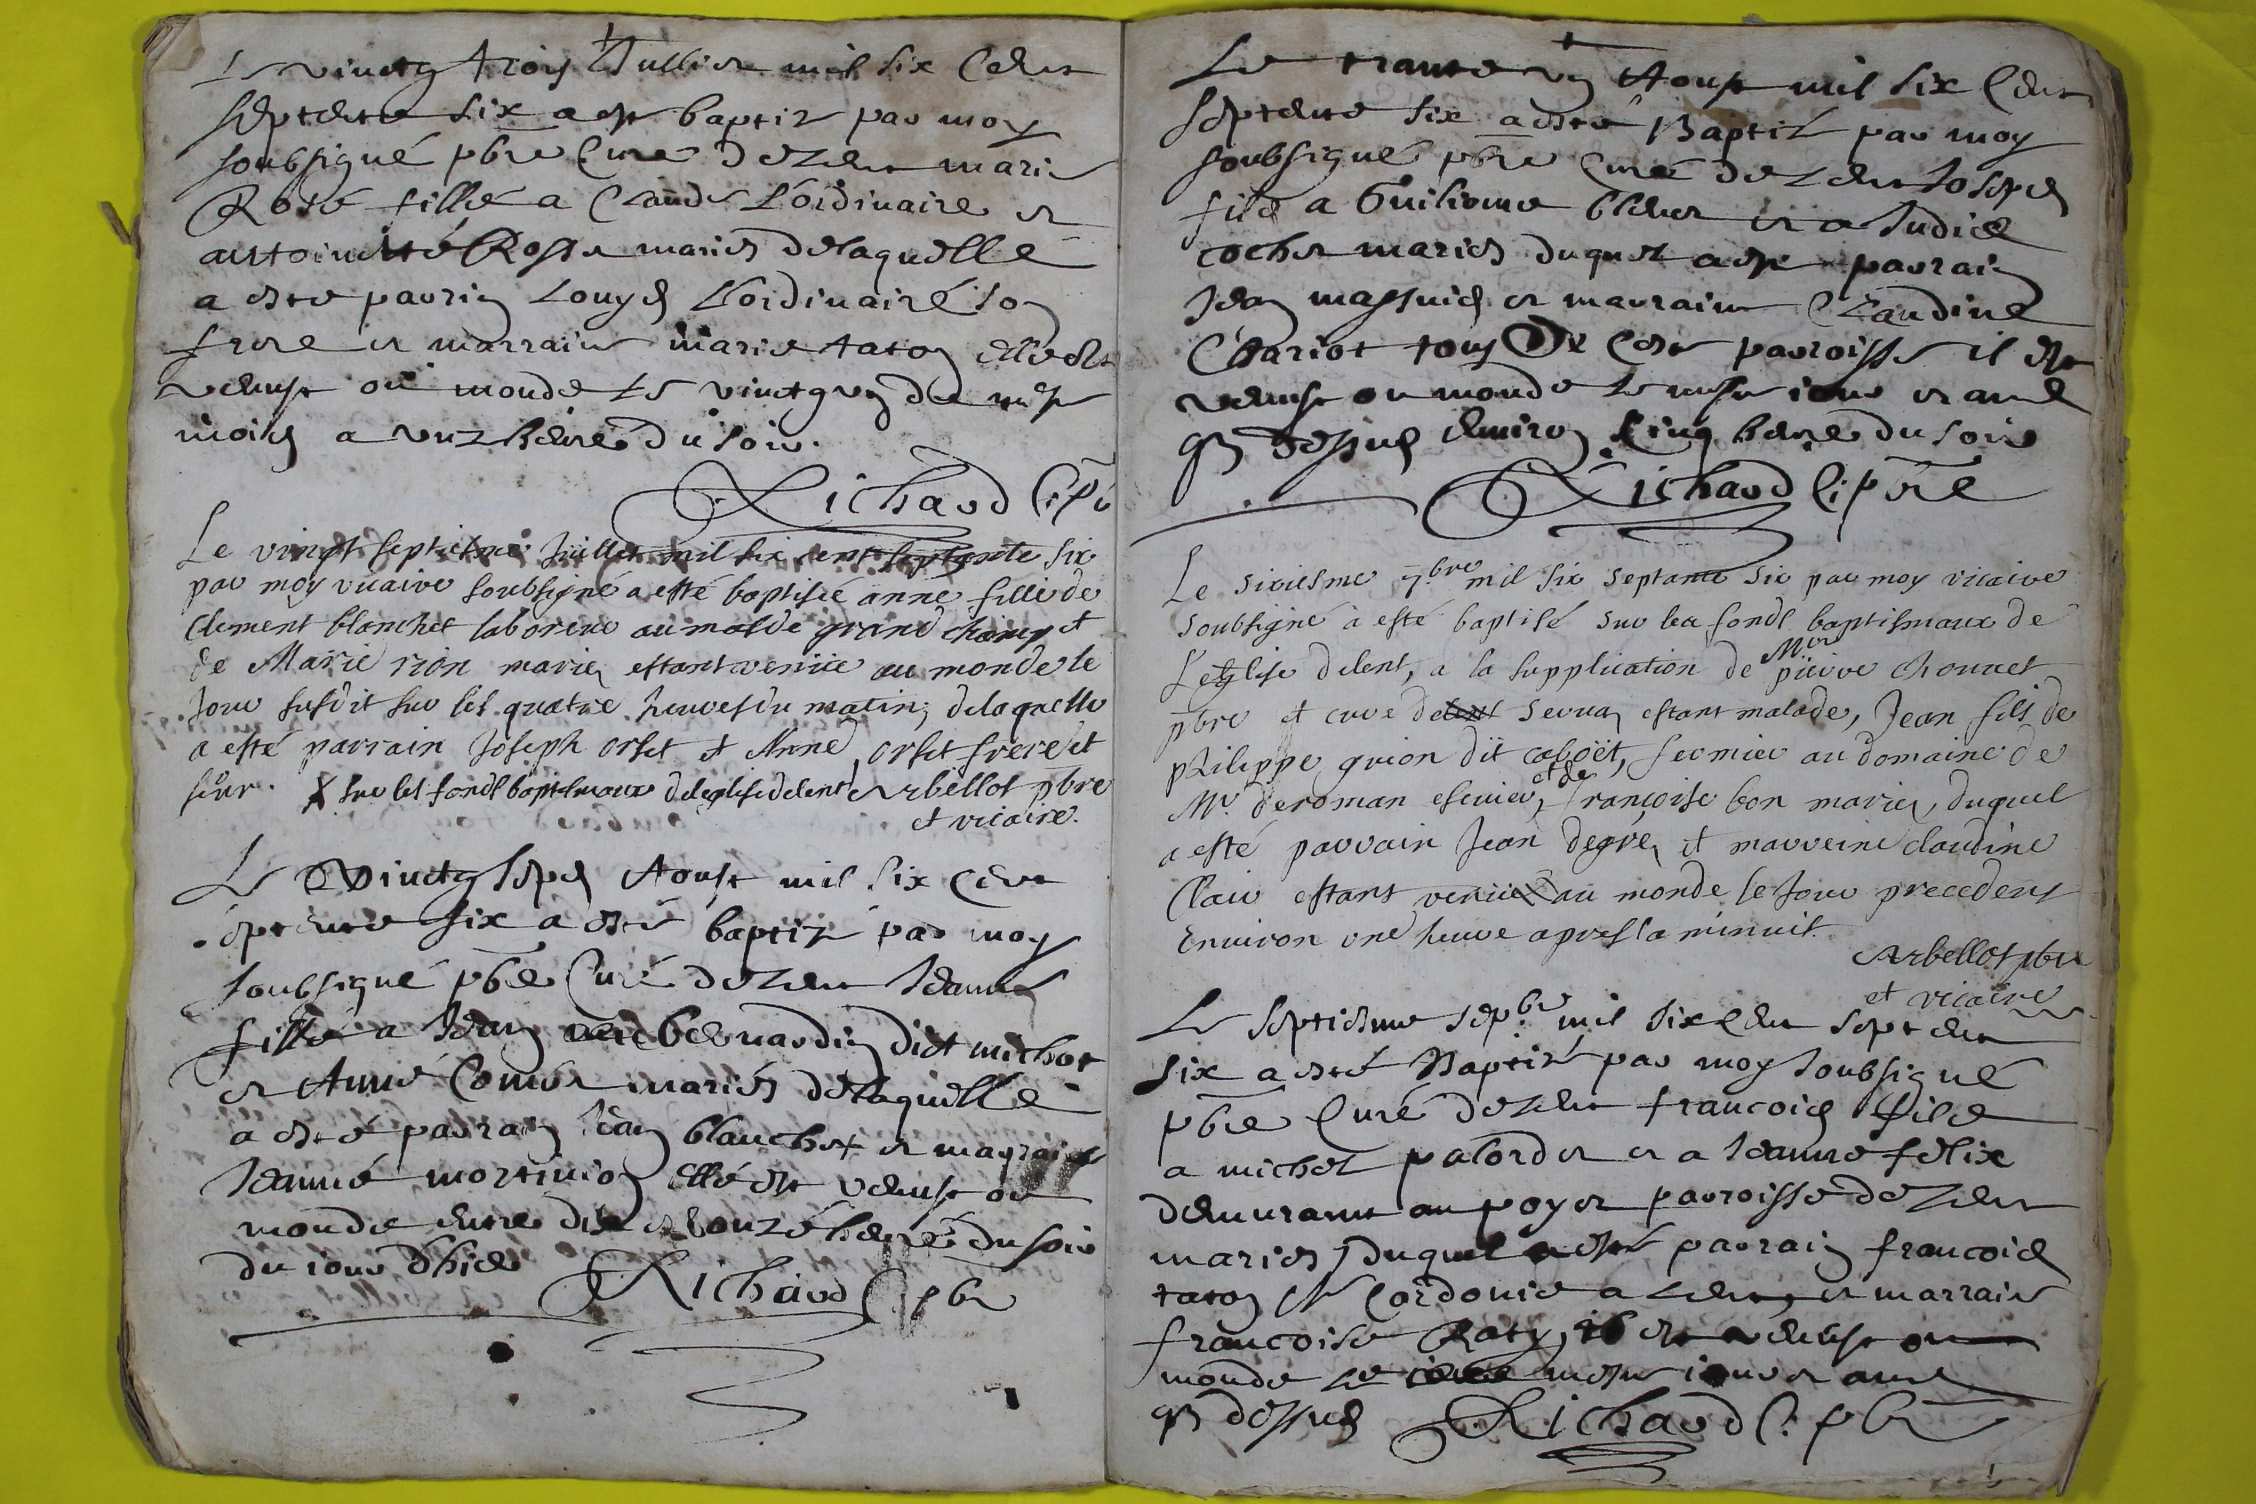 Le vinctg troys Jullier mil six cent
septente six a este baptiz par moy
soubsigné pbre Curé de Lent marie
Rose fille a Claude L'ordinaire et
anthoinette Rosse mariés de laquelle
a esté parrin Louys L'ordinaire son
frere et marraine marie taton elle est
venuse au monde le vinctg un du mesme
mois a unz heure du soir.
Richard C. pb
Le vingt septiesme Juillet mil six cent septante six
par moy vicaire soubsigné a esté baptisée anne fille de
Clement blanchet laboreur au mas de grand champ et
de Marie rion mariez estant venüe au monde le
Jour susdit sur les quatre heures du matin; de laquelle
a esté parrain Joseph orset et Anne orset frere et
seur. X sur les fonds baptismaux de leglise de lent Arbellot pbre
et vicaire.
Le vinctg sept Aoust mil six cent
septente six a esté baptiz par moy
soubsigné pbre Curé de Lent Jeanne
fille a Jean bernardin dict michot
et Anne Comer mariés de laquelle
a esté parrain Jean blanchet et marraine
Jeanne mortinion elle est venuse au
monde entre dix et onze heure du soir
du jour d'hier Richard C. pbr
Le trante un Aoust mil six cent
septente six a esté Baptiz par moy
soubsigné pbre Curé de Lent Joseph
fils a Guiliome et a Judict
cochet mariés duquel a este parrain
Jean et marraine Claudine
Chariot tous De Ceste parroisse il est
venuse au monde le mesme jour et an
que dessus enviro cinq heure du soir
Richard C. pbre
Le sixiesme 7.bre mil six septante six par moy vicaire
soubsigné à esté baptisé sur les fonds baptismaux de
L'eglise de lent, a la supplication de Mre pierre chonnet
pbre et curé de servaz estant malade, Jean fils de
philippe grion dit caboët, fermier au domaine de
Mr deroman escuier, et de françoise bon mariez, duquel
a esté parrain Jean degrez et marreine claudine
Clair estant venu au monde le Jour precedent
Environ une heure apres la minuit.
Arbellot pbre
et vicaire
Le septiesme sepbre mil six cent septent
six a esté Baptizé par moy soubsigné
pbre Curé de Lent francois fils
a michel palordet et a Jeanne felix
demurant au poyet parroisse de Lent
mariés duquel a esté parrain francois
taton Mr Cordonier a Lent, et marraine
francoise Raty, il est venuse au
monde le mesme jour et an
que dessus Richard C. pbr